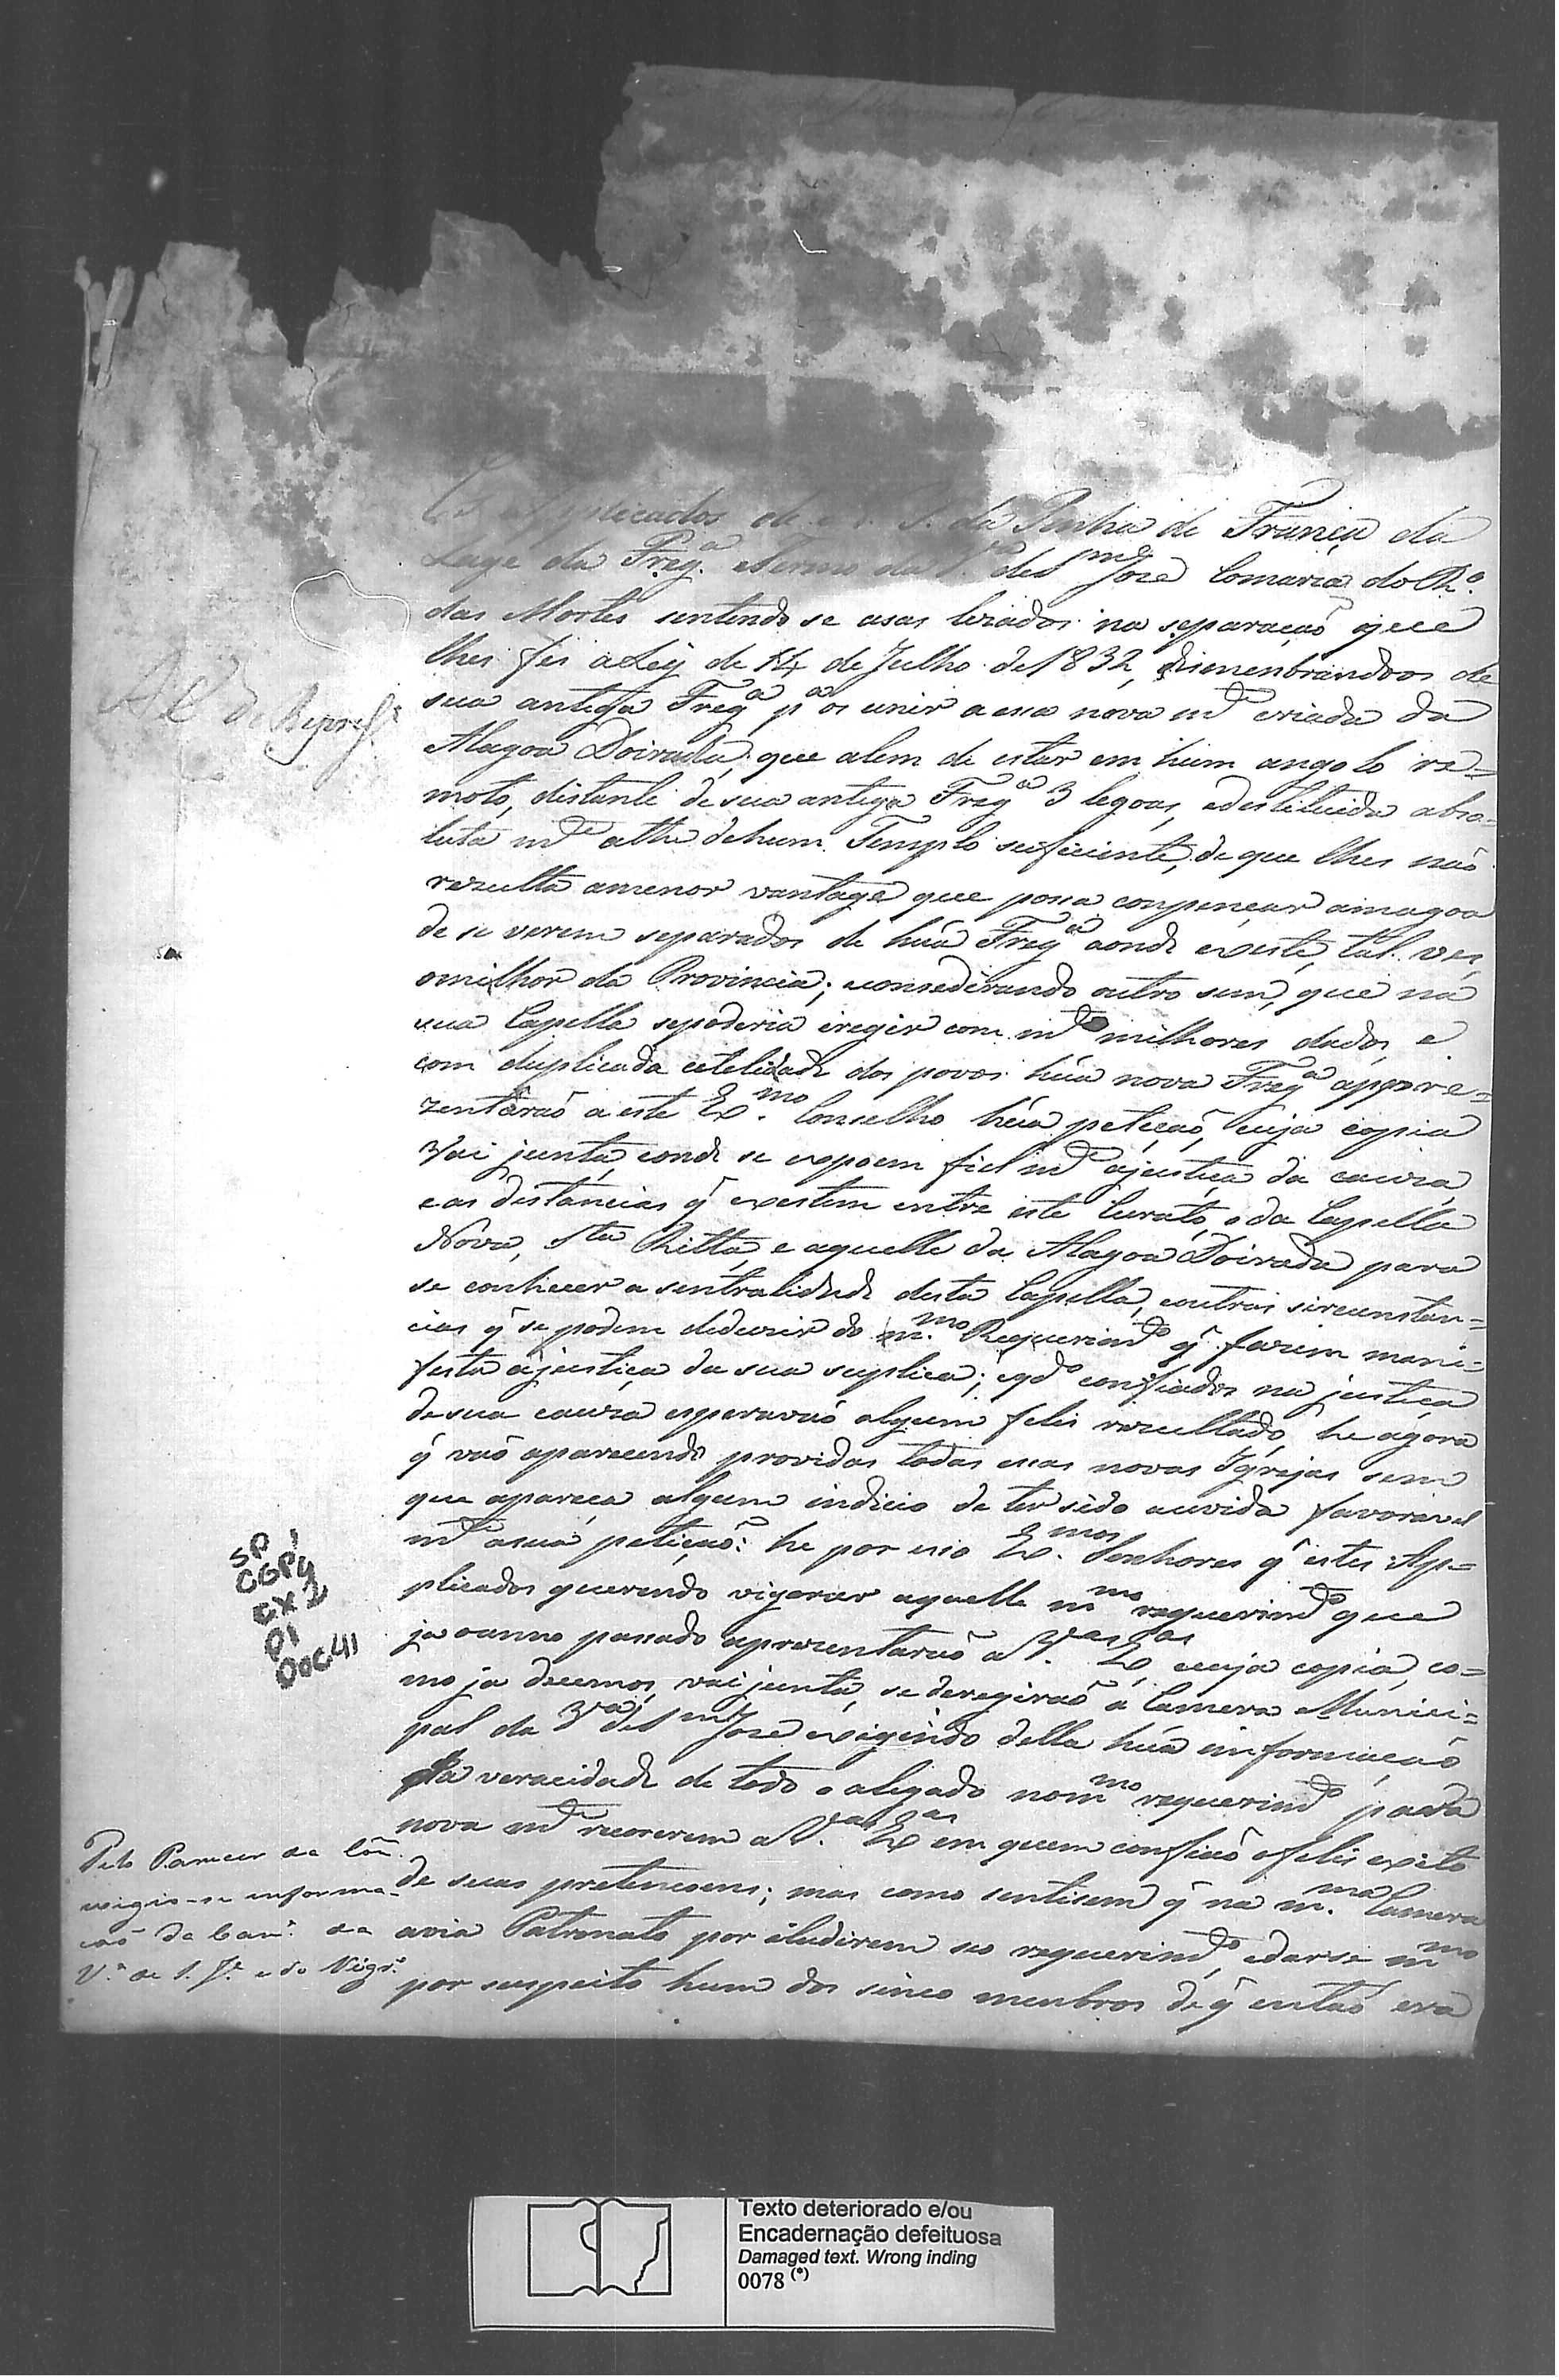 Os Applicados de N. S. da Penha de França da
Lage da Freg.ª e Termo da V.ª de S.m José Comarca do R.º
das Mortes sentindo se asas leziados na separação que
lhes fes a Ley de 14 de Julho de 1832, dismenbrandoos de
sua antiga Freg.ª p.ª os unir a essa nova m.te criada da
Alagoa Doirada, que alem de estar em hum angolo re=
moto, distante de sua antiga Freg.ª 3 legoas, e destituida abso=
luta m.te athe de hum Templo suficiente, de que lhes não
rezulta a menor vantage que possa conpençar a magoa
de se verem separados de hũa Freg.ª aonde existe, tal ves,
o milhor da Provincia; e considerando outro sim, que na
sua Capella se poderia eregir com m.to milhores dados, e
com duplicada utelidade dos povos hũa nova Freg.ª appre=
zentârão a este Ex.mo Conselho hũa petição, cuja copia
vai junta, e onde se expoem fiel m.te a justiça da cauza
e as distancias q̃ existem entre este Curato, o da Capella
Nova, S.ta Ritta, e aquelle da Alagoa Doirada para
se conhecer a sentralidade desta Capella, e outras sircunstan=
cias q̃ se podem deduzir do m.mo Requerim.to q̃ fazem mani=
festa a justiça da sua suplica; e qd.º confiados na justiça
de sua cauza esperavão algum felis rezultado, he agora
q̃ vão aparecendo providas todas essas novas Igrejas sem
que apareça algum indicio de ter sido auvida favoravel
m.te a sua petição: he por isso Ex.mos Senhores q̃ estes Ap=
plicados querendo vigorar aquelle m.mo requerim.to que
ja o anno passado aprezentarão a V.as Ex.as cuja copia, co=
mo ja decemos, vai junta, se deregirão a Camera Munici=
pal da V.ª de S.m José exigindo della hũa imformação
da veracidade de todo o alegado no m.mo requerim.to para
nova m.te recorerem a V.as Ex.as em quem confião o felis exito
de suas pretencoens; mas como sentisem q̃ na m.ma Camera
avia Patronato por eludirem seo requerim.to, e darse m.mo
por suspeito hum dos sinco menbros de q̃ entaõ era
Á C. de Represt.
SP 1
CGP4
CX 2
01
DOC.41
Pelo Parecer da Cõm.
exigio-se informa-
ção da Cam.ª da
V.ª de S. J.e e do Vigr.º
Texto deteriorado e/ou
Encadernação defeituosa
Damaged text. Wrong inding
0078 (*)